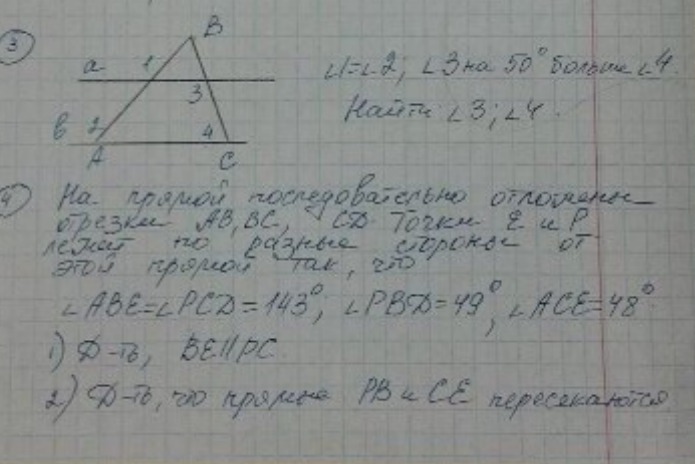 3
B
a 1
3
в 2 4
A C
∠1=∠2; ∠3 на 50° больше ∠4.
Найти ∠3; ∠4.
4
На прямой последовательно отложены
отрезки AB, BC, CD. Точки E и P
лежат по разные стороны от
этой прямой так, что
∠ABE=∠PCD=143°; ∠PBD=49°, ∠ACE=48°
1) Д-ть, BE||PC.
2) Д-ть, что прямые PB и CE пересекаются